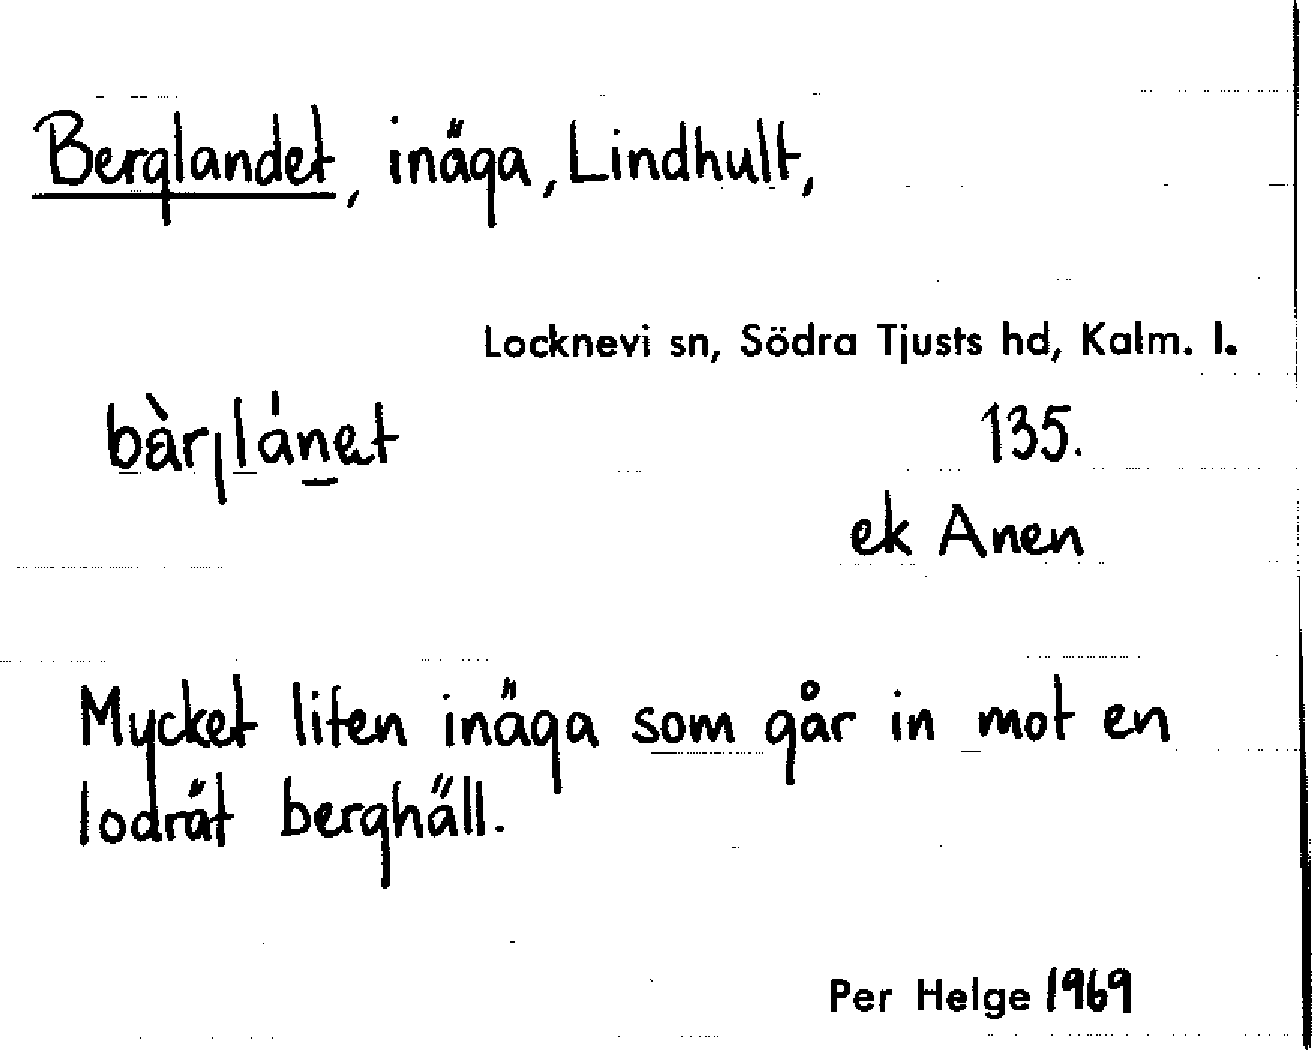 Berglandet, inäga, Lindhult,
Locknevi sn, Södra Tjusts hd, Kalm. l.
bàrꞁlánət
135.
ek Anen
Mycket liten inäga som går in mot en
lodrät berghäll.
Per Helge 1969